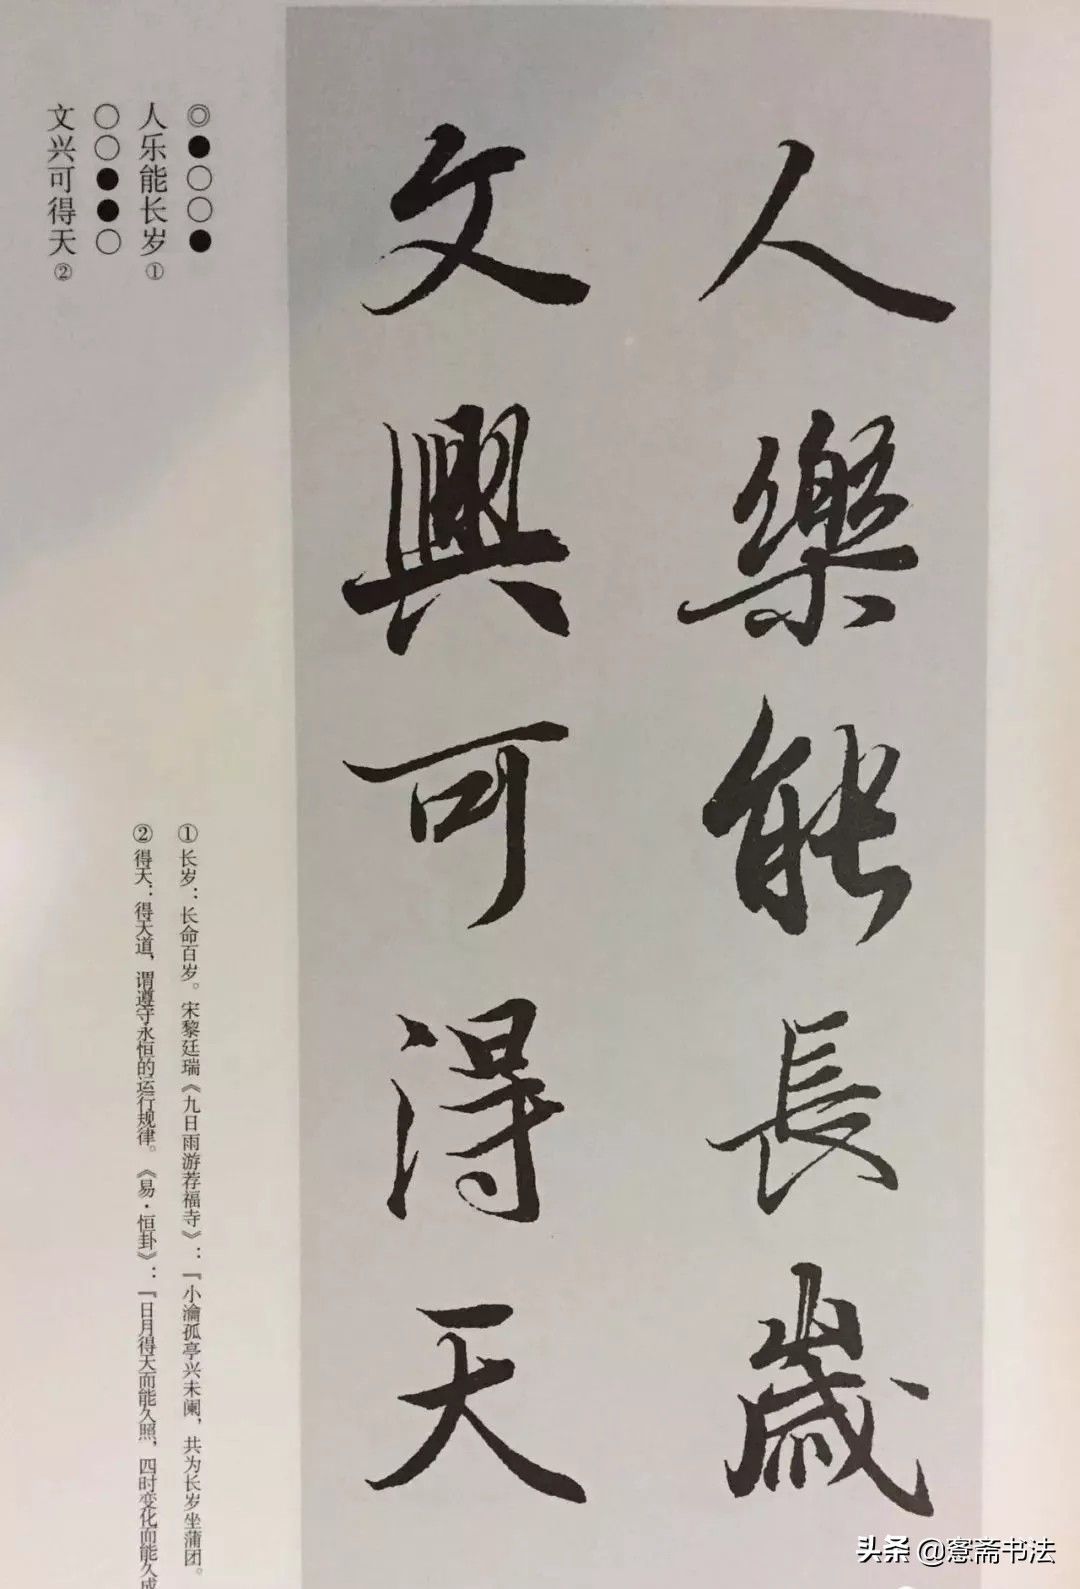 人樂能長歲
文興可得天
◎●○○●
人乐能长岁①
○○●●○
文兴可得天②
①长岁：长命百岁。宋黎廷瑞《九日雨游荐福寺》：『小瀹孤亭兴未阑，共为长岁坐蒲团。
②得天：得天道，谓遵守永恒的运行规律。《易·恒卦》：『日月得天而能久照，四时变化而能久成
头条@窓斋书法